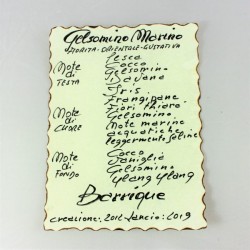 Gelsomino Marino
FIORITA-ORIENTALE-GUSTATIVA
Pesca
Note Cocco
di Gelsomino
TESTA Davana
Iris
Frangipane
Note Fiori Thiaré
di Gelsomino
CUORE Note marine
acquatiche
leggermente saline
Note Cocco
di Vaniglia
FONDO Gelsomino
Ylang Ylang
Barrique
creazione: 2012 Lancio: 2019